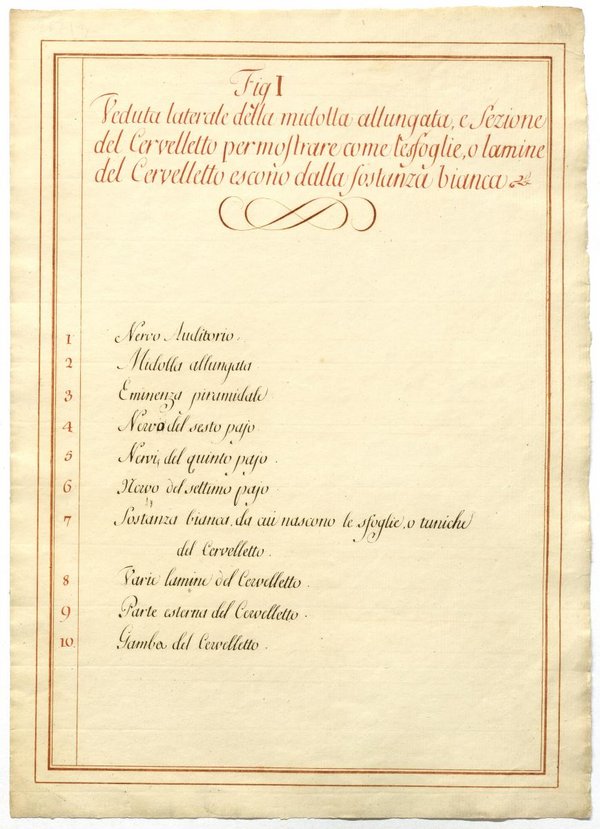 Fig I
Veduta laterale della midolla allungata, e Sezione
del Cervelletto per mostrare come le sfoglie, o lamine
del Cervelletto escono dalla sostanza bianca
1 Nervo Auditorio.
2 Midolla allungata
3 Eminenza piramidale
4 Nervo del sesto pajo.
5 Nervi del quinto pajo.
6 Nervo del settimo pajo.
7 Sostanza bianca, da cui nascono le sfoglie, o tuniche
del Cervelletto.
8 Varie lamine del Cervelletto.
9 Parte esterna del Cervelletto.
10 Gamba del Cervelletto.